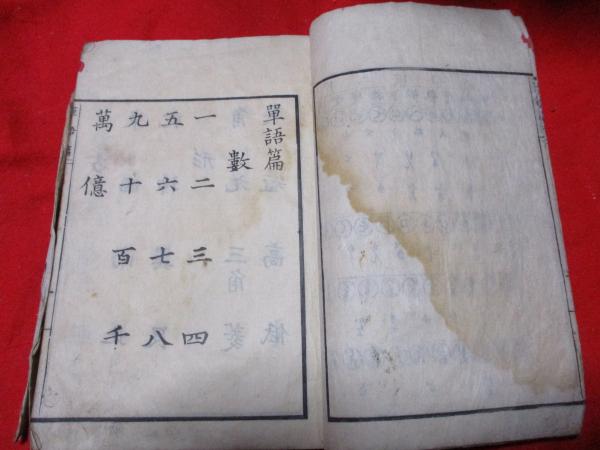 單語篇
數
一 二 三 四
五 六 七 八
九 十 百 千
萬 億